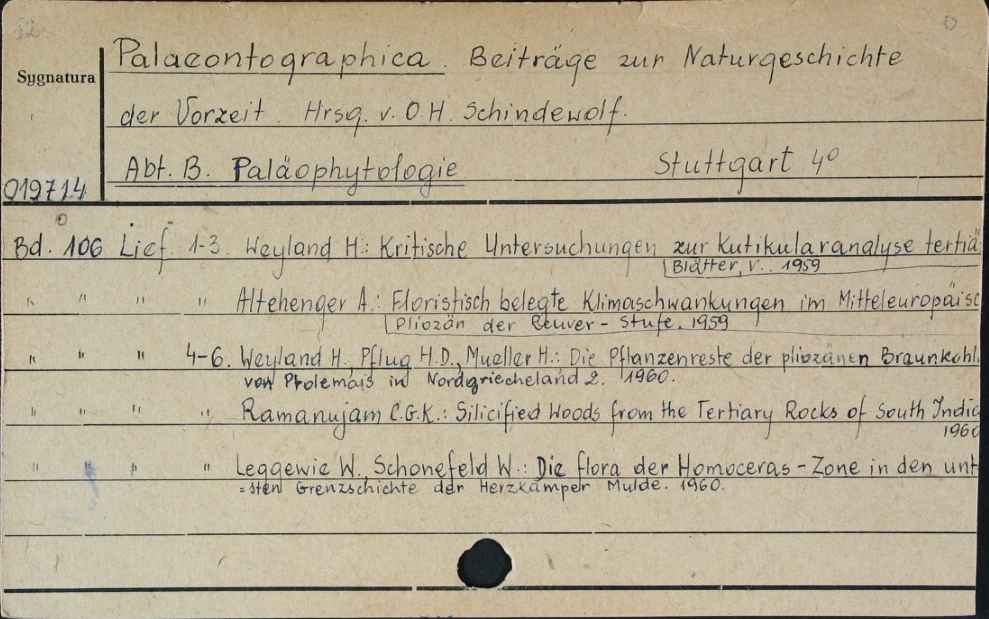 Palaeontographica. Beiträge zur Naturgeschichte
Sygnatura
der Vorzeit. Hrsg. v. O.H. Schindewolf.
Abt. B. Paläophytologie Stuttgart 4°
019714
Bd. 106 Lief. 1-3. Weyland H.: Kritische Untersuchungen zur Kutikularanalyse tertiä
Blätter, V.. 1959
" " " " Altehenger A.: Floristisch belegte Klimaschwankungen im Mitteleuropäisc
Pliozän der Reuver-Stufe. 1959
" " " 4-6. Weyland H., Pflug H.D., Mueller H.: Die Pflanzenreste der pliozänen Braunkohl
von Ptolemais in Nordgriecheland 2. 1960.
" " " " Ramanujam C.G.K.: Silicified Woods from the Tertiary Rocks of South India
1960
" " " " Leggewie W., Schonefeld W.: Die flora der Homoceras-Zone in den unt
=sten Grenzschichte der Herzkamper Mulde. 1960.